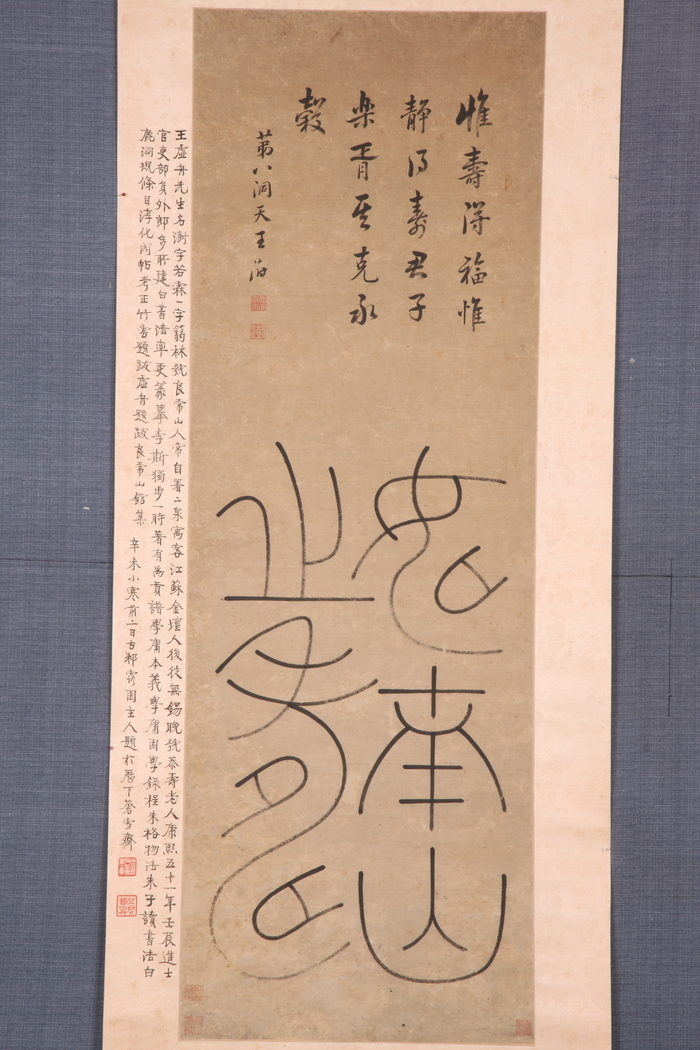 惟壽得福惟
静得壽君子
樂胥其克永
穀
第八洞天王澍
如南山
之壽
王虛舟先生名澍字若霖一字蒻林號良常山人常自署二泉寓客江蘇金壇人後徙無錫晚號恭壽老人康熙五十一年壬辰進士
官吏部員外郎多所建白書法率更篆摹李斯獨步一時著有禹貢譜學庸本義學庸困學錄程朱格物法朱子讀書法白
鹿洞規條目淳化閣帖考正竹雲題跋虛舟題跋良常山館集 辛未小寒前二日古主人題於歷下蒼雪齋